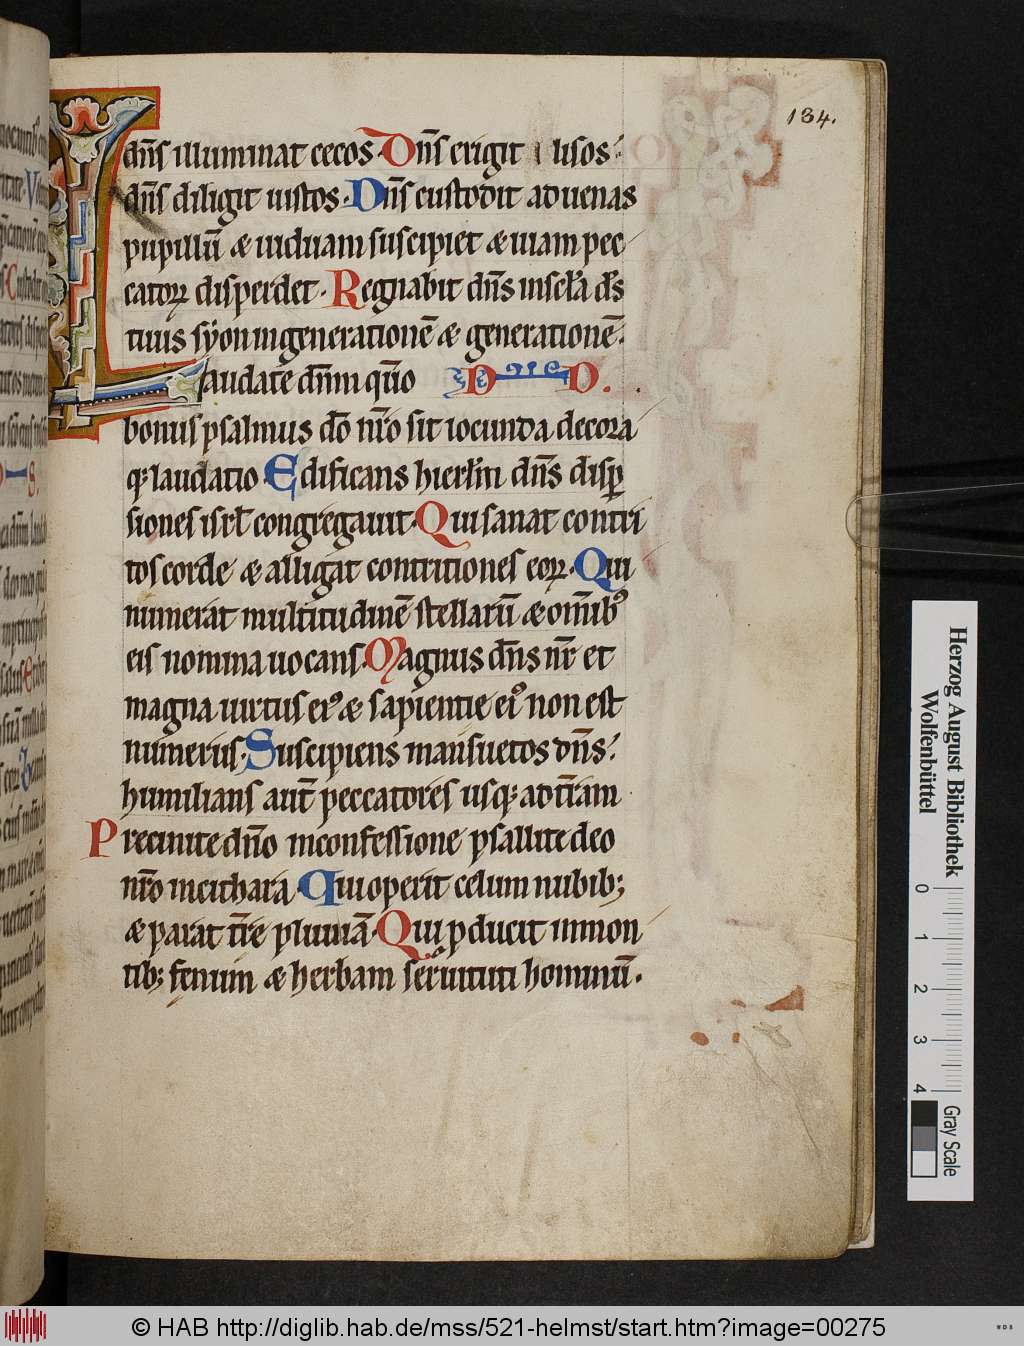 134.
dn̄s illuminat cecos. Dn̄s erigit elisos.
dn̄s diligit iustos. Dn̄s custodit aduenas
pupillū & uiduam suscipiet & uiam pec
catoꝝ disperdet. Regnabit dn̄s in sec̄la ds̄
tuus syon in generationē & generationē.
Laudate dn̄m qm̄o
bonus psalmus dō nr̄o sit iocunda decora
q; laudatio. Edificans hierl̄m dn̄s disp̄
siones isrl̄ congregauit. Qui sanat contri
tos corde & alligat contritiones eoꝝ. Qui
numerat multitudinē stellarū & omībꝰ
eis nomina uocans. Magnus dn̄s nr̄ et
magna uirtus eiꝰ & sapientie eiꝰ non est
numerus. Suscipiens mansuetos dn̄s.
humilians aut̄ peccatores usq; ad tr̄am
Precinite dn̄o in confessione psallite deo
nr̄o in cithara. Qui operit celum nubib;
& parat tr̄ę pluuiā. Qui ꝓducit in mon
tib; fenum & herbam seruituti hominū.
Herzog August Bibliothek
Wolfenbüttel
0 1 2 3 4
Gray Scale
© HAB http://diglib.hab.de/mss/521-helmst/start.htm?image=00275